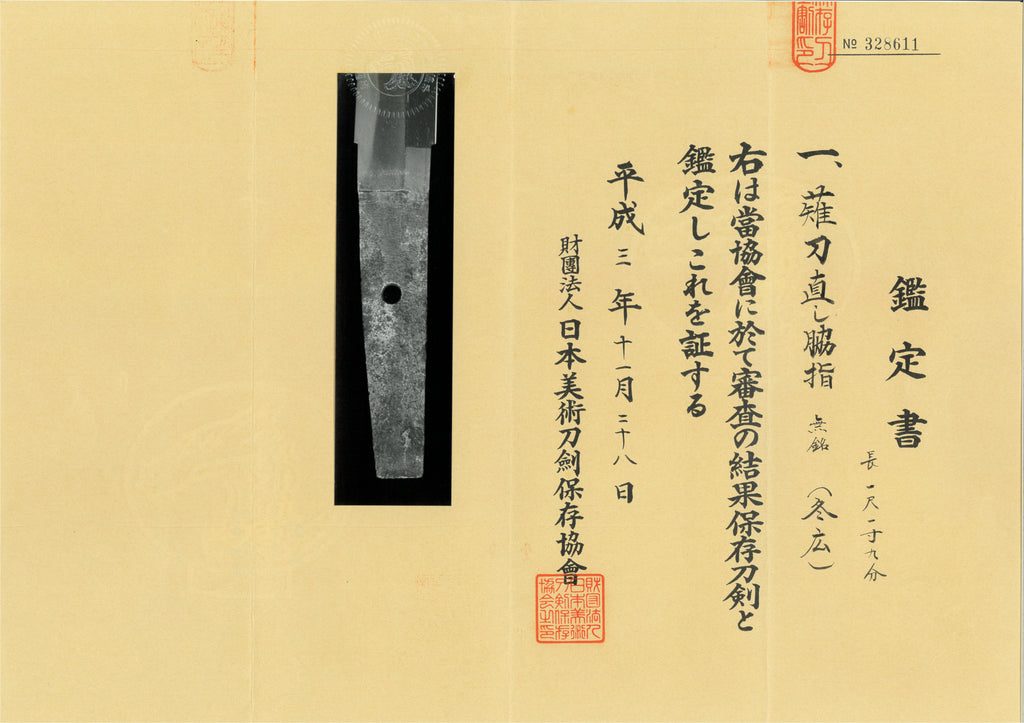 № 328611
鑑定書
長一尺一寸九分
一、薙刀直し脇指 無銘 (冬広)
右は當協會に於て審査の結果保存刀剣と
鑑定しこれを証する
平成三年十一月二十八日
財團法人日本美術刀劍保存協會
財団法人日本美術刀剣保存協会之印